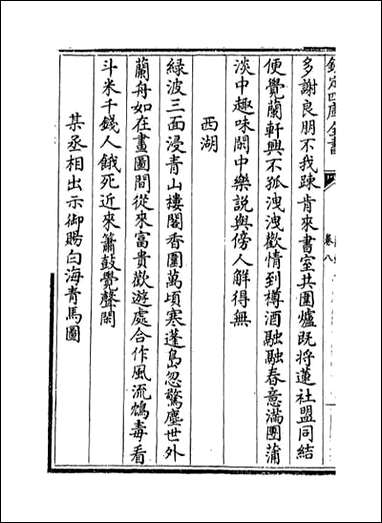 欽定四庫全書
卷八
多謝良朋不我踈肯來書室共圍爐既將蓮社盟同結
便覺蘭軒興不狐洩洩歡情到樽酒融融春意滿團蒲
淡中趣味閙中樂説與傍人解得無
西湖
綠波三面浸青山樓閣香圍萬頃寒蓬島忽驚塵世外
蘭舟如在畫圖間從來富貴歡遊處合作風流鴆毒看
斗米千錢人餓死近來簫鼓覺聲閑
某丞相出示御賜白海青馬圖